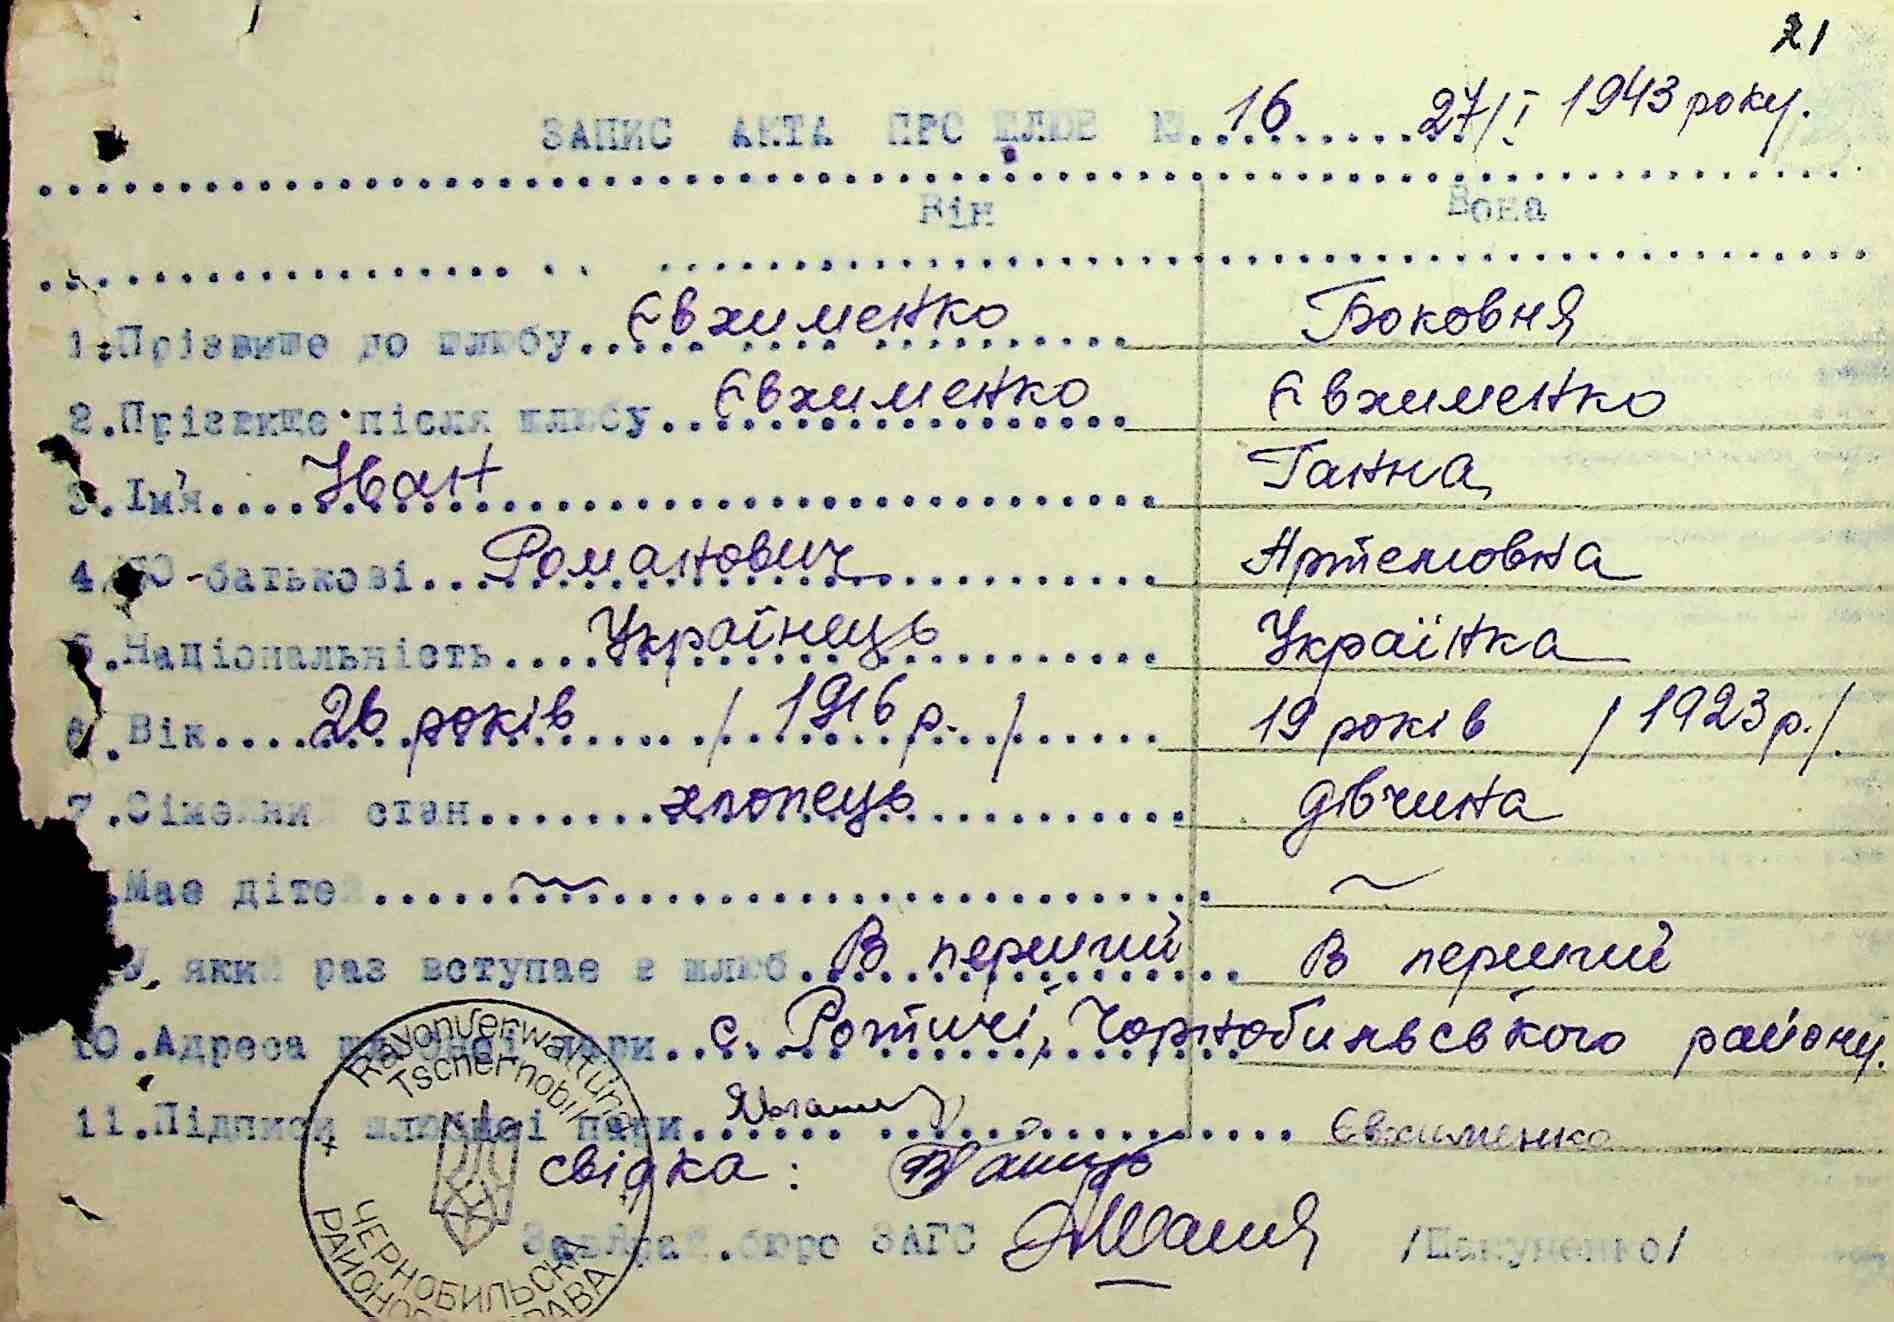 21
ЗАПИС АКТА ПРО ШЛЮБ №....16....27/I 1943 року.
Він Вона
1.Прізвище до шлюбу....Євхименко.... Боковня
2.Прізвище після шлюбу....Євхименко.... Євхименко
3.Ім'я....Иван.... Ганна
4.По-батькові....Романович.... Артемовна
5.Національність....Українець.... Українка
6.Вік....26 років..../1916 р./.... 19 років /1923 р./
7.Сімейний стан....хлопець.... дівчина
.Має дітей....~.... ~
У який раз вступає в шлюб....В перший.... В перший
10.Адреса пари....с. Ротичі, Чорнобильського району.
11.Підписи пари.... Євхименко
свідка:
Зав. Рай.бюро ЗАГС /Шакуненко/
Rayonverwaltung
Tschernobil
ЧЕРНОБИЛЬСКА
РАЙОНОВА УПРАВА